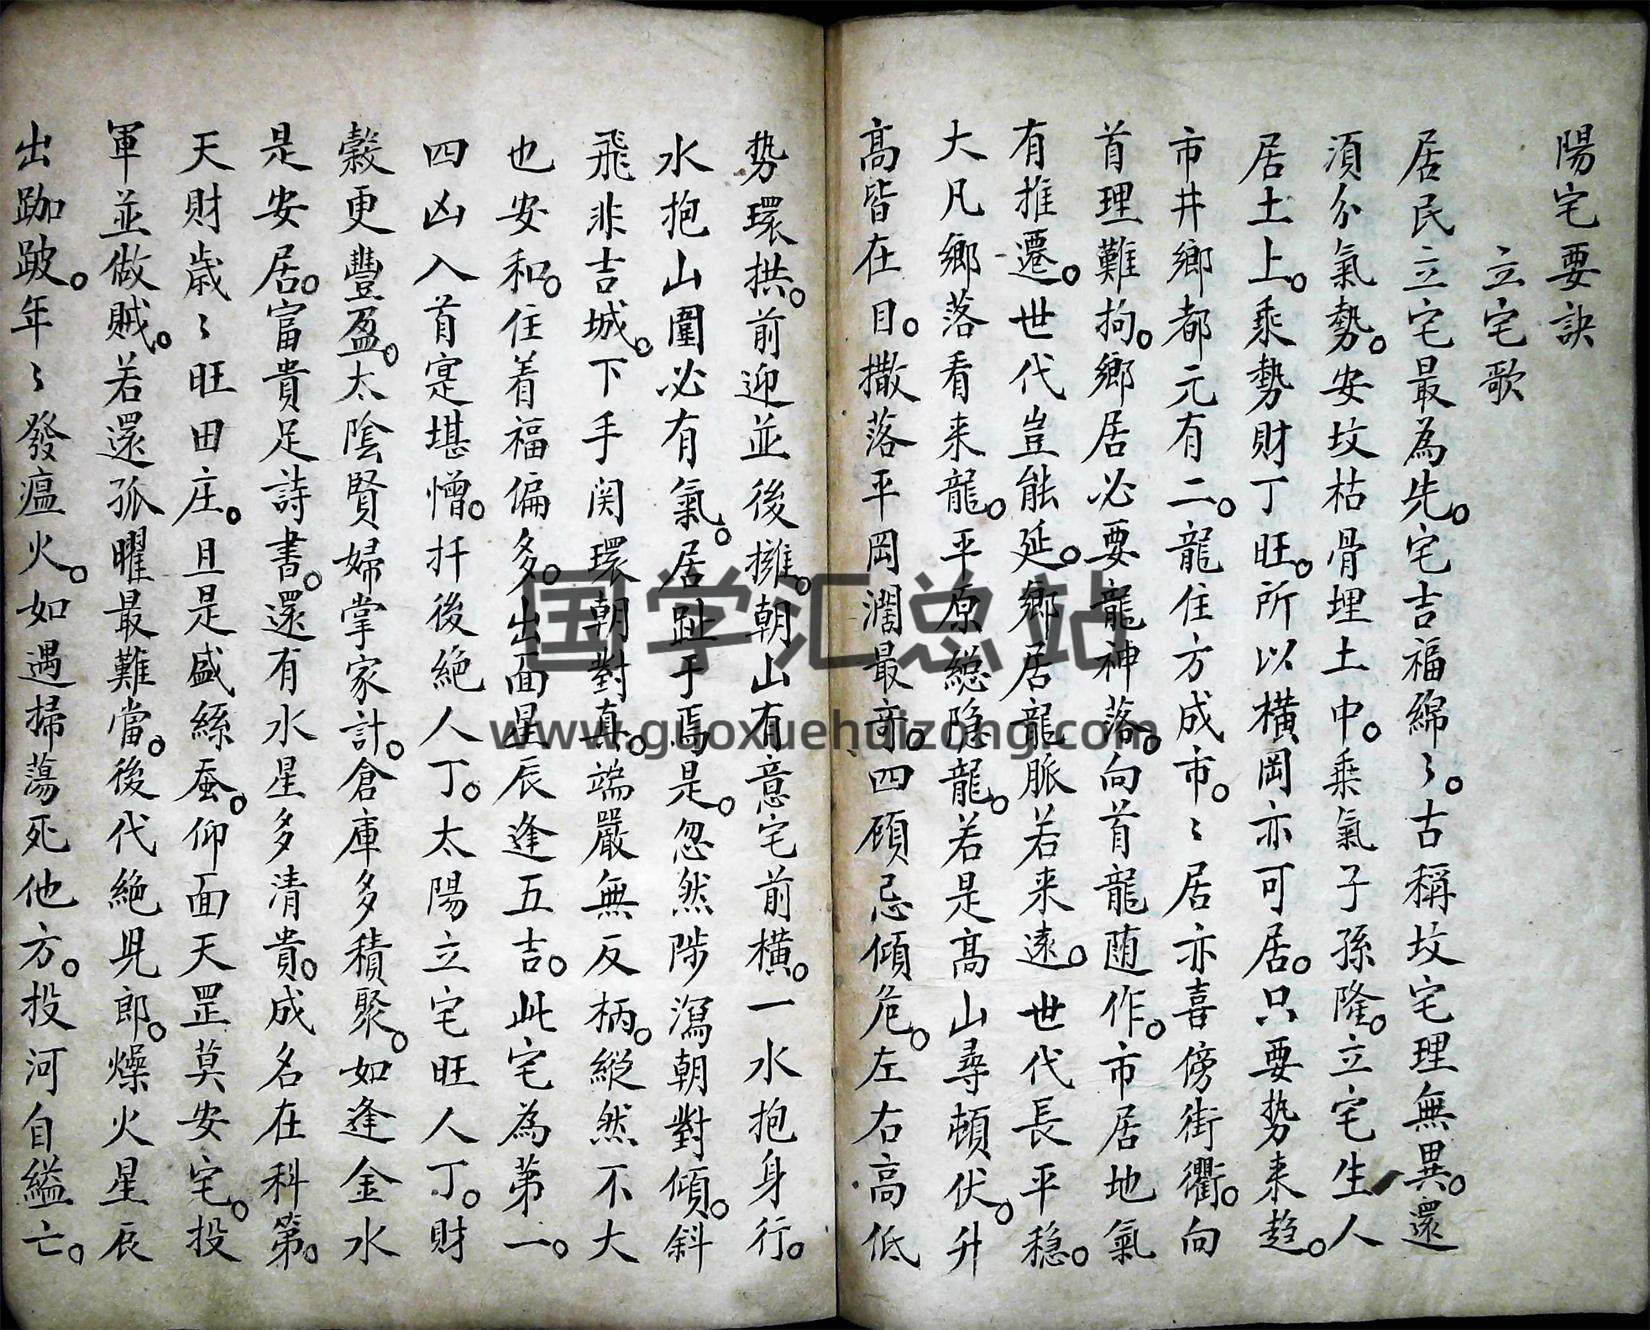 陽宅要訣
立宅歌
居民立宅最為先。宅吉福綿〻。古稱坟宅理無異。還
須分氣勢。安坟枯骨埋土中。乘氣子孫隆。立宅生人
居土上。乘勢財丁旺。所以橫岡亦可居。只要势来趋。
市井鄉都元有二。龍住方成市。〻居亦喜傍街衢。向
首理難拘。鄉居必要龍神落。向首龍随作。市居地氣
有推遷。世代豈能延。鄉居龍脈若来遠。世代長平穏。
大凡鄉落看来龍。平原總隐龍。若是高山尋頓伏。升
高皆在目。撒落平岡濶最奇。四顧忌傾危。左右高低
势環拱。前迎並後擁。朝山有意宅前橫。一水抱身行。
水抱山圍必有氣。居趾于焉是。忽然陟瀉朝對傾。斜
飛非吉城。下手関環朝對真。端嚴無反柄。縱然不大
也安和。住着福偏多。出面星辰逢五吉。此宅為第一。
四凶入首寔堪憎。扦後絕人丁。太陽立宅旺人丁。財
穀更豐盈。太陰賢婦掌家計。倉庫多積聚。如逢金水
是安居。富貴足詩書。還有水星多清貴。成名在科第。
天財歲〻旺田庄。且是盛絲蚕。仰面天罡莫安宅。投
軍並做賊。若還孤曜最難當。後代絕児郎。燥火星辰
出跏跛。年〻發瘟火。如遇掃蕩死他方。投河自縊亡。
国学汇总站
www.guoxuehuizong.com